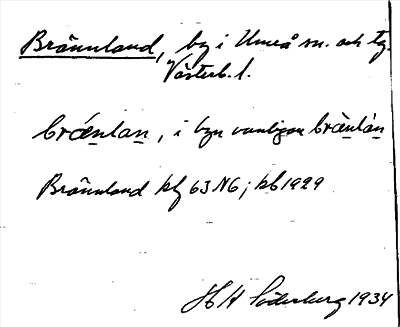 Brännland, by i Umeå sn. och tg.
Västerb. l.
brǽnlan, i byn vanligen brænlán
Brännland hfl 63 N6; kb 1929
H H Söderberg 1934